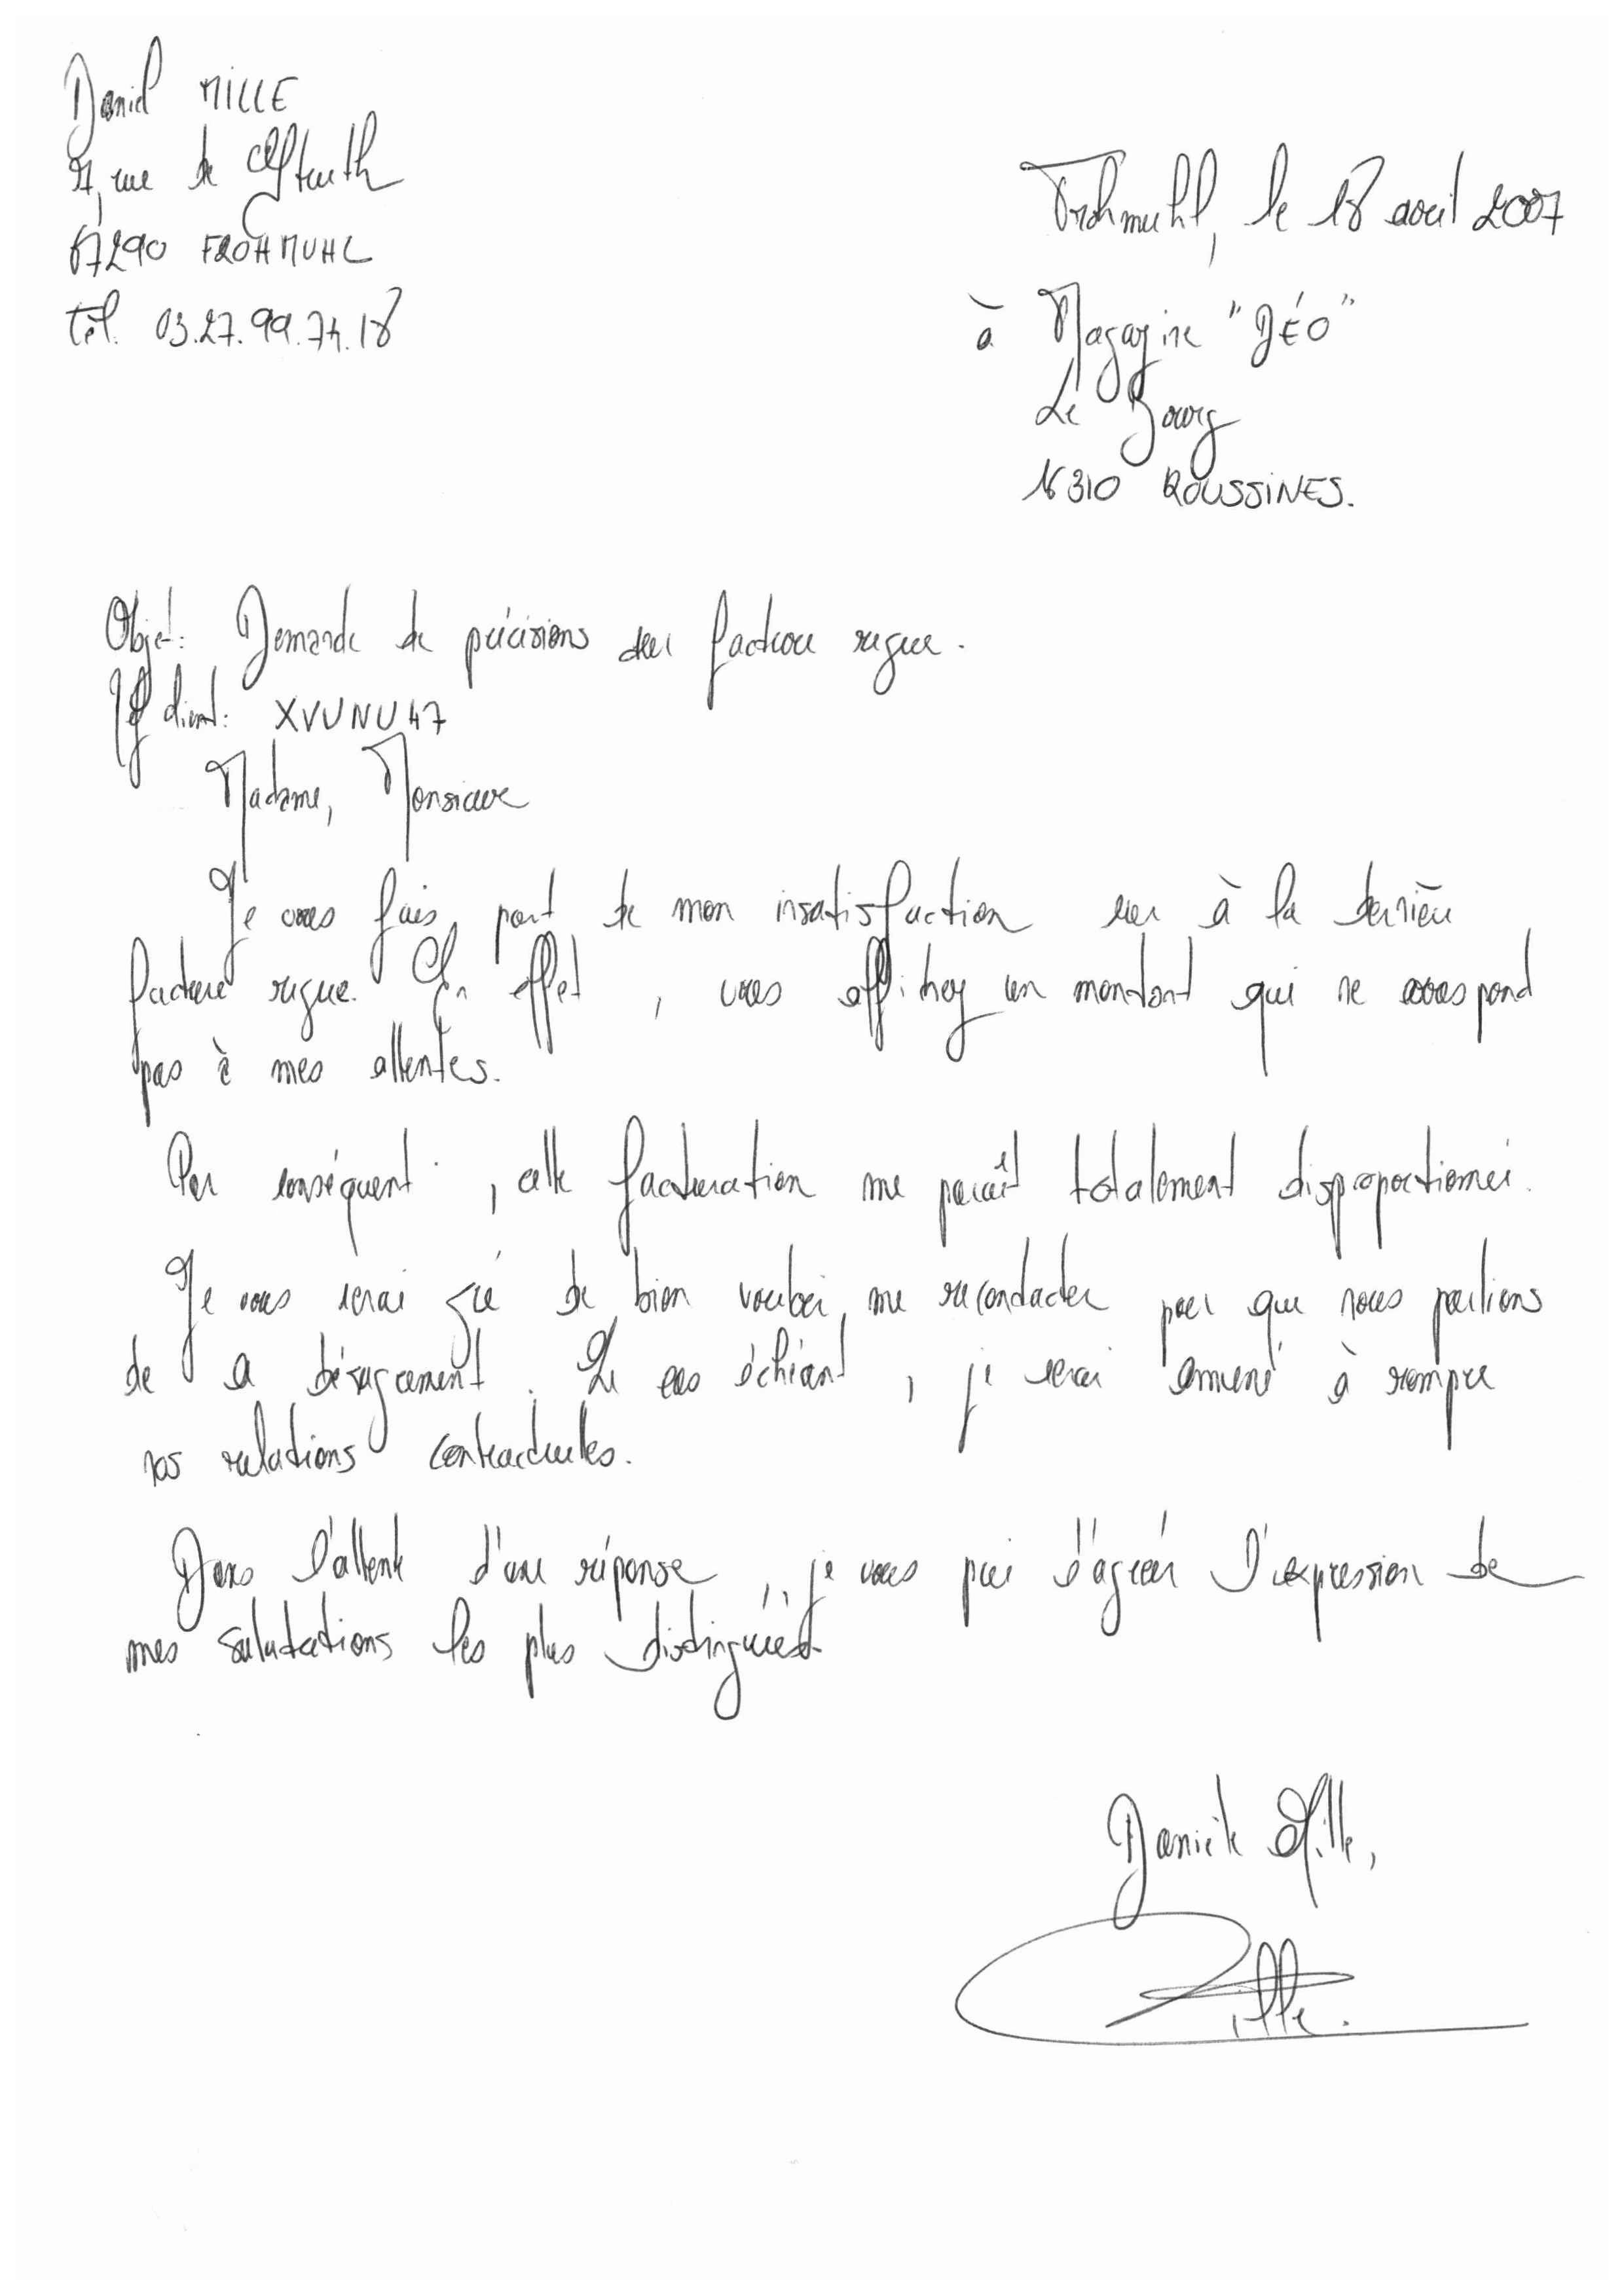 Daniel MILLE
rue de
67290 FROHMUHL
Tél. 03.27.99.74.18
Frohmuhl, le 18 avril 2007
à Magazine "GÉO"
Le Bourg
16310 ROUSSINES.
Objet: Demande de précisions sur facture reçue.
Réf client: XVUNU47
Madame, Monsieur
Je vous fais part de mon insatisfaction suer à la dernière
facture reçue. En effet, vous affichez un montant qui ne correspond
pas à mes attentes.
Par conséquent, cette facturation me paraît totalement disproportionnée.
Je vous serai gré de bien vouloir me recontacter pour que nous parlions
de ce désagrement. Le cas échéant, je serai amené à rompre
nos relations contractuelles.
Dans l'attente d'une réponse, je vous prie d'agréer l'expression de
mes salutations les plus distinguées.
Danièle Mille,
Mille.